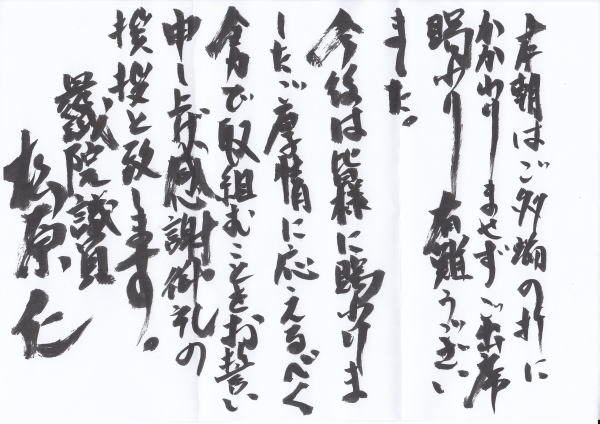 本朝はご多端の折に
かかわりませずご出席
賜わり 有難うござい
ました。
今後は皆様に賜わりま
したご厚情に応えるべく
全力で取組むことをお誓い
申し上げ感謝御礼の
挨拶と致します。
衆議院議員
松原仁